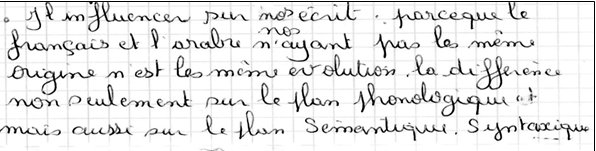 . Il influencer sur nos écrit. parceque le
français et l'arabe n'ayant pas les même
nos
origine n'est les même évolution. la différence
non seulement sur le plan phonologique et
mais aussi sur le plan Sémantique. Syntaxique